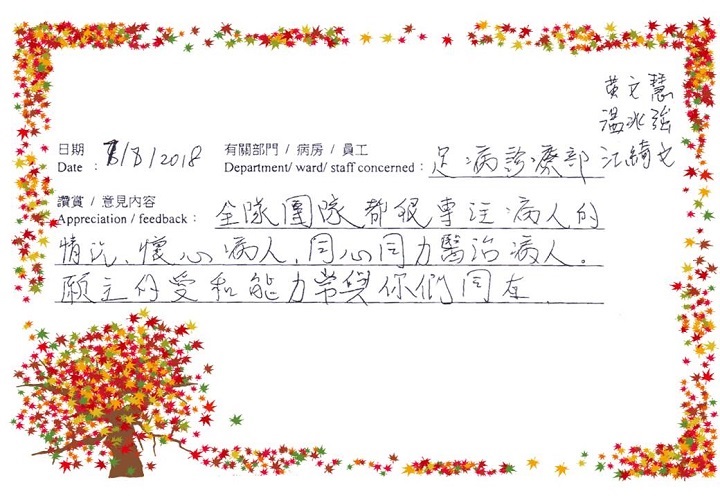 黄文慧
溫冰強
日期 有關部門 / 病房 / 員工
Date : 8/8/2018 Department/ ward/ staff concerned : 足病診療部 江綺文
讚賞 / 意見內容
Appreciation / feedback : 全隊團隊都很專注病人的
情況、懷心病人、同心同力醫治病人。
願主的愛和能力常與你們同在